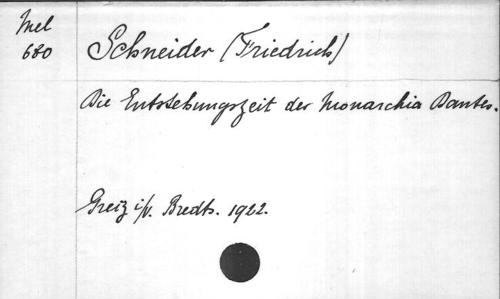 Mel
680
Schneider (Friedrich)
Die Entstehungszeit der Monarchia Dantes.
Greiz i/V. Bredts. 1922.